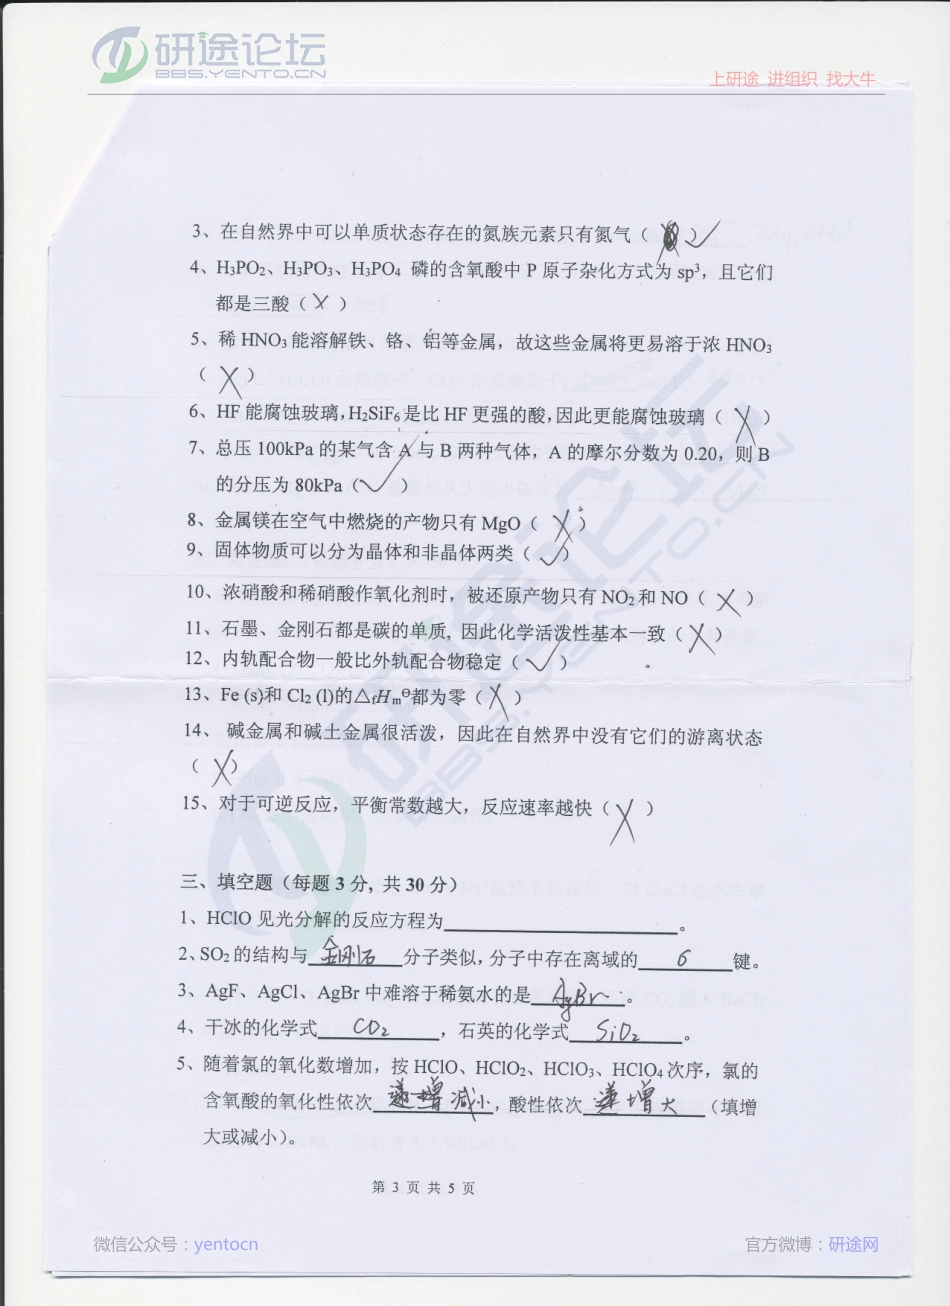 研途论坛
BBS.YENTO.CN
上研途 进组织 找大牛
3、在自然界中可以单质状态存在的氮族元素只有氮气（ ）✓
4、H₃PO₂、H₃PO₃、H₃PO₄ 磷的含氧酸中 P 原子杂化方式为 sp³，且它们
都是三酸（ X ）
5、稀 HNO₃ 能溶解铁、铬、铝等金属，故这些金属将更易溶于浓 HNO₃
（ X ）
6、HF 能腐蚀玻璃,H₂SiF₆是比 HF 更强的酸,因此更能腐蚀玻璃（ X ）
7、总压 100kPa 的某气含 A 与 B 两种气体，A 的摩尔分数为 0.20，则 B
的分压为 80kPa（ ✓ ）
8、金属镁在空气中燃烧的产物只有 MgO（ X ）
9、固体物质可以分为晶体和非晶体两类（ ✓ ）
10、浓硝酸和稀硝酸作氧化剂时，被还原产物只有 NO₂和 NO（ X ）
11、石墨、金刚石都是碳的单质, 因此化学活泼性基本一致（ X ）
12、内轨配合物一般比外轨配合物稳定（ ✓ ）
13、Fe (s)和 Cl₂ (l)的△fHmᶱ都为零（ X ）
14、 碱金属和碱土金属很活泼，因此在自然界中没有它们的游离状态
（ X ）
15、对于可逆反应，平衡常数越大，反应速率越快（ X ）
三、填空题（每题 3 分, 共 30 分）
1、HClO 见光分解的反应方程为____________。
2、SO₂的结构与 金刚石 分子类似,分子中存在离域的 6 键。
3、AgF、AgCl、AgBr 中难溶于稀氨水的是 AgBr 。
4、干冰的化学式 CO₂ ，石英的化学式 SiO₂ 。
5、随着氯的氧化数增加，按 HClO、HClO₂、HClO₃、HClO₄次序，氯的
含氧酸的氧化性依次 递增 减小，酸性依次 递增大（填增
大或减小)。
第 3 页 共 5 页
微信公众号：yentocn
官方微博：研途网